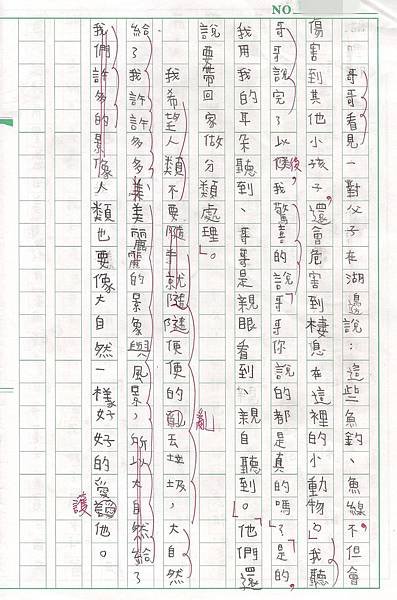 NO.
哥哥看見一對父子在湖邊說：這些魚鈎、魚線不但會
傷害到其他小孩子，還會危害到棲息在這裡的小動物。」我聽
哥哥說完了以後，我驚喜的說「哥哥你說的都是真的嗎」「是的，
我用我的耳朵聽到、哥哥是親眼看到、親自聽到。」他們還
說要帶回家做分類處理」。
我希望人類不要隨手就隨隨便便的亂丟垃圾，大自然
給了我許許多多美麗的景象與風景，所以大自然給了
我們許多的景像人類也要像大自然一樣好好的愛護他。